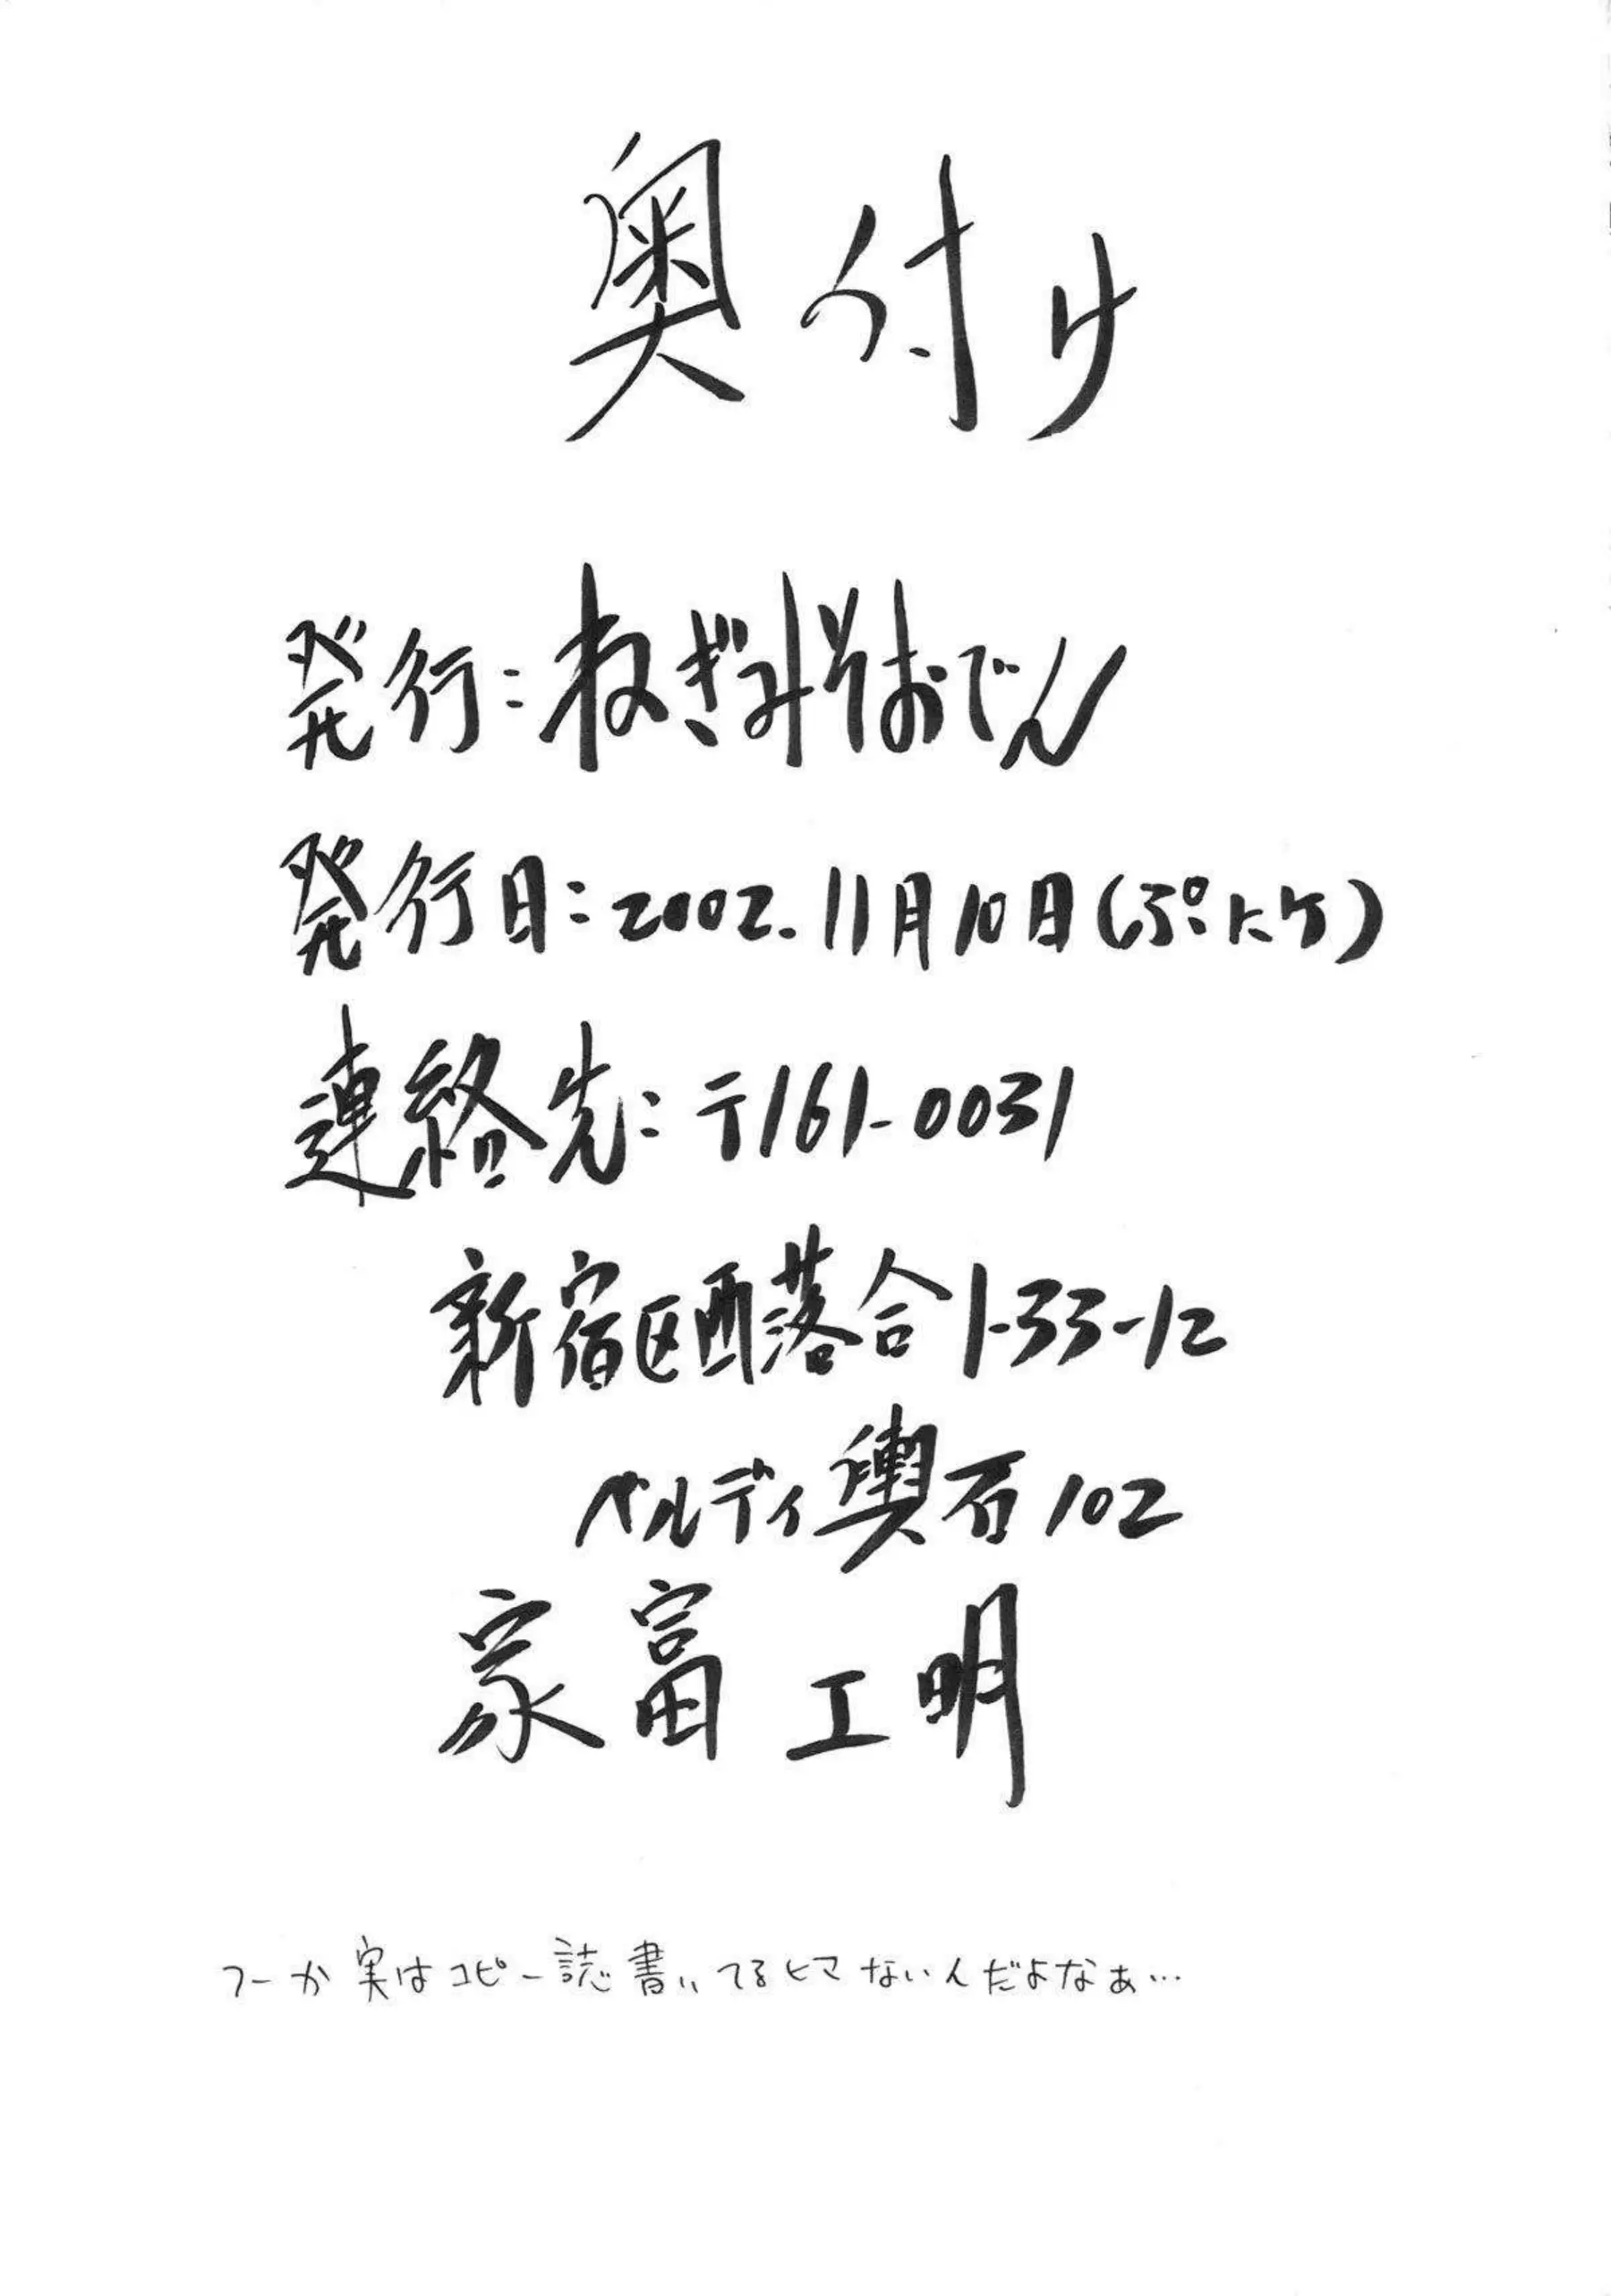 奥付け
発行：ねぎみそおでん
発行日：2002.11月10日（ぷにケ）
連絡先：〒161-0031
新宿区西落合1-33-12
ベルディ輿石102
家富工明
つーか実はコピー誌書いてるヒマないんだよなぁ…